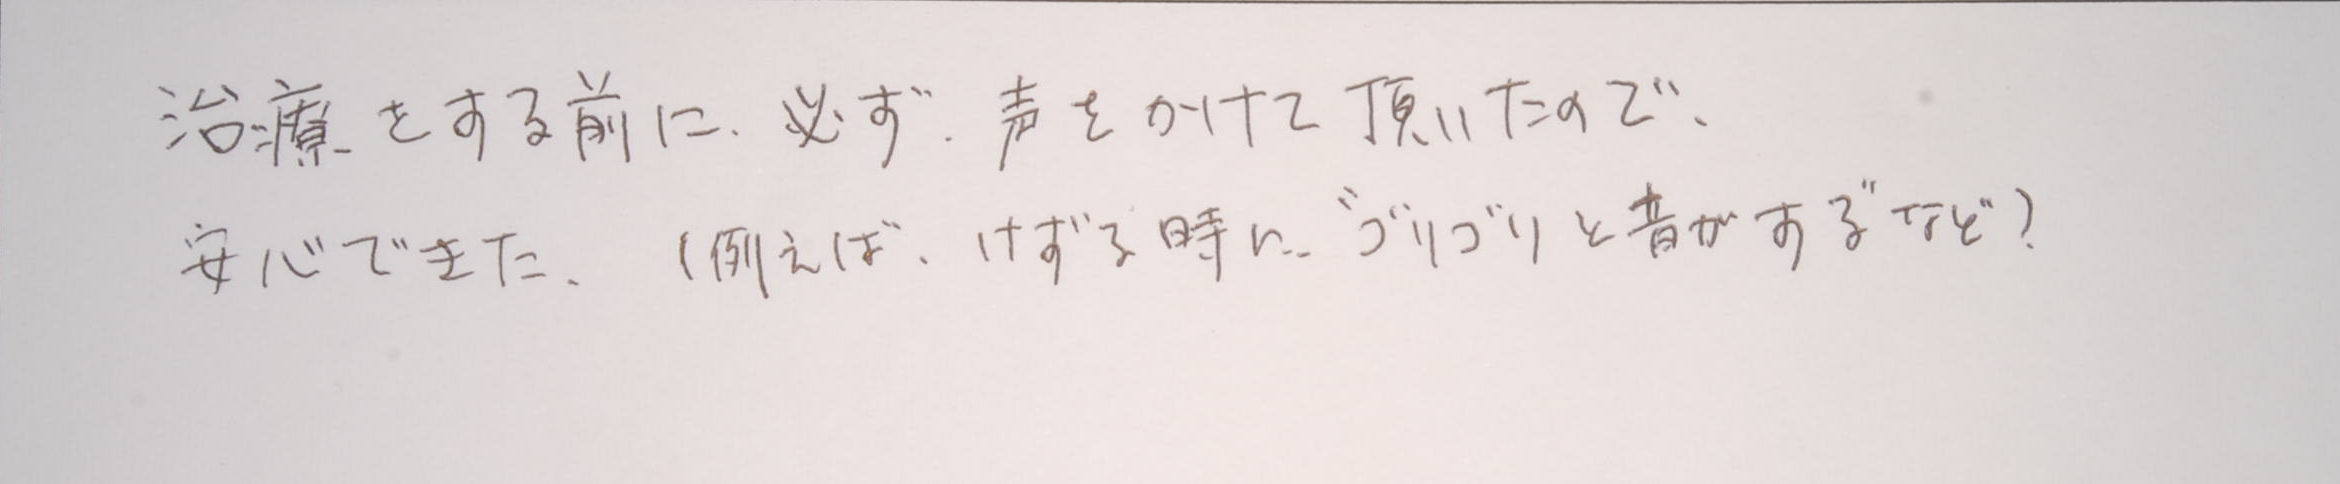 治療をする前に、必ず、声をかけて頂いたので、
安心できた、(例えば、けずる時に、"ゴリゴリと音がする"など)